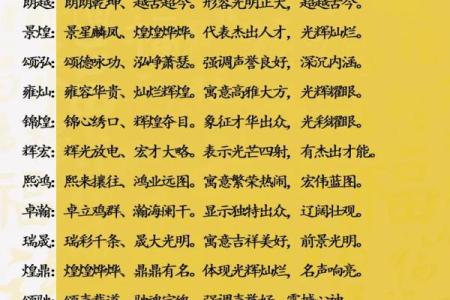 朗越：朗朗乾坤、超越古今。形容光明正大，超越古今。
景煌：景星麟凤、煌煌烨烨。代表杰出人才，光辉灿烂。
颂泓：颂德咏功、泓峥萧瑟。强调声誉良好，深沉内涵。
雍灿：雍容华贵、灿烂辉煌。寓意高雅大方，光辉耀眼。
锦煌：锦心绣口、辉煌夺目。象征才华出众，光彩耀眼。
辉宏：辉光放电、宏才大略。表示光芒四射，有杰出才能。
熙鸿：熙来攘往、鸿业远图。寓意繁荣热闹，宏伟蓝图。
卓瀚：卓立鸡群、瀚海阑干。显示独特出众，辽阔壮观。
瑞晟：瑞彩千条、晟大光明。寓意吉祥美好，前景光明。
煌鼎：煌煌烨烨、鼎鼎有名。体现光辉灿烂，名声响亮。